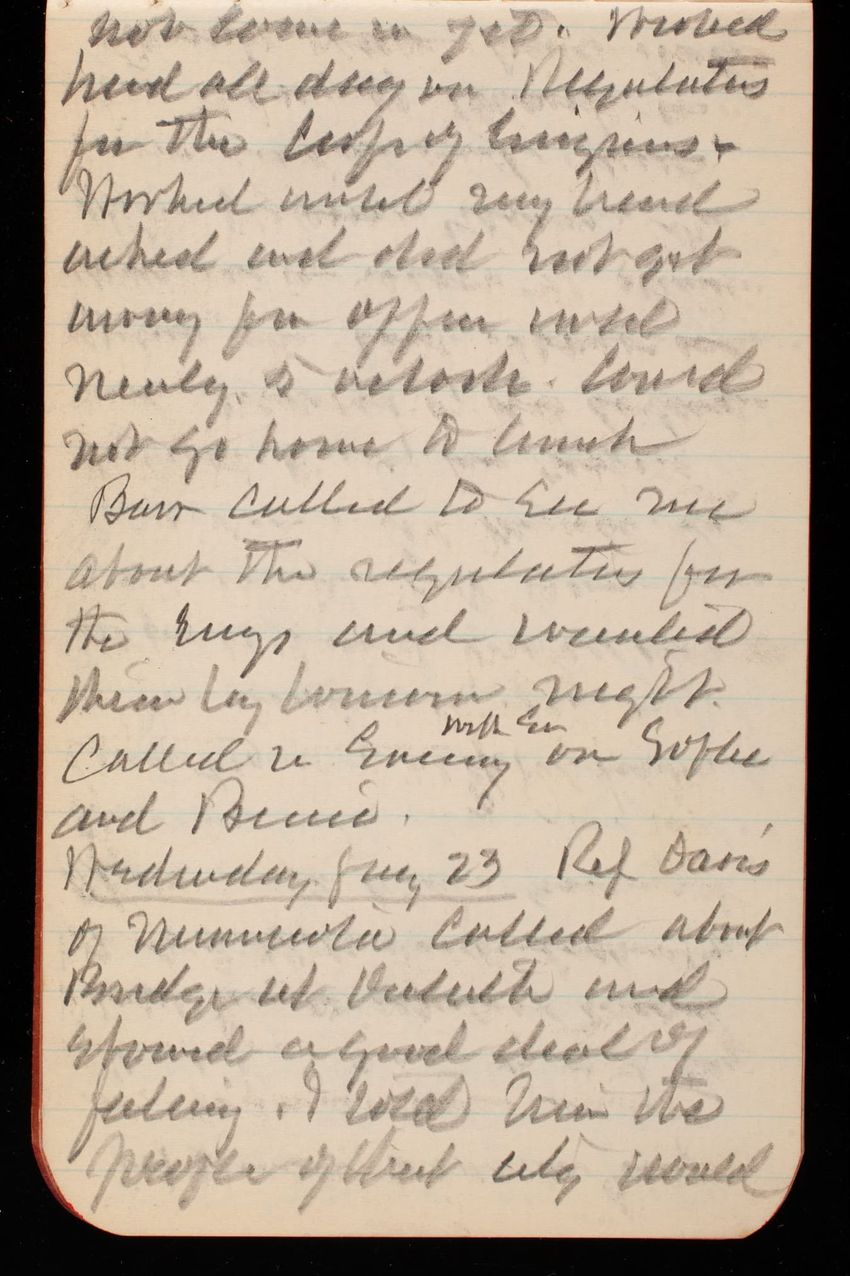 not come in yet. Worked
hard all day on Regulations
for the Corps of Engineers.
Worked until my hand
ached and did not get
away from office until
nearly 5 oclock. Could
not go home to lunch
Barr called to see me
about the regulations for
the Engs and wanted
them by tomorrow night.
Called in evening with Eva on Sophie
and Bernie.
Wednesday Jany 23 Rep Davis
of Minnesota called about
Bridge at Duluth and
showed a good deal of
feeling. I told him the
people of that city would